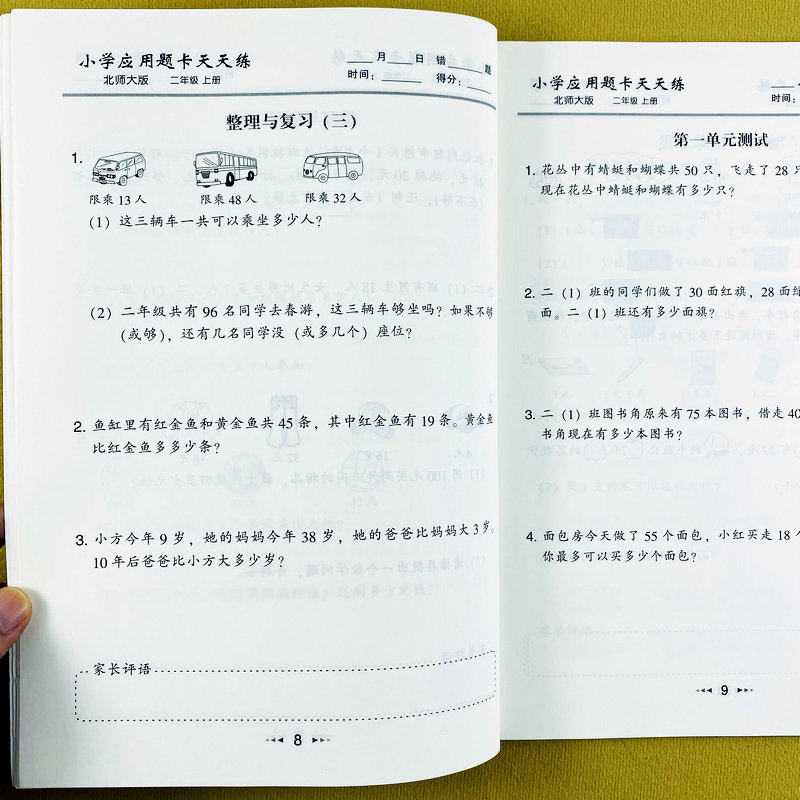 小学应用题卡天天练
北师大版 二年级 上册
____月____日 错____题
时间：____ 得分：____
整理与复习（三）
1.
限乘 13 人 限乘 48 人 限乘 32 人
（1）这三辆车一共可以乘坐多少人？
（2）二年级共有 96 名同学去春游，这三辆车够坐吗？如果不够
（或够），还有几名同学没（或多几个）座位？
2. 鱼缸里有红金鱼和黄金鱼共 45 条，其中红金鱼有 19 条。黄金鱼
比红金鱼多多少条？
3. 小方今年 9 岁，她的妈妈今年 38 岁，她的爸爸比妈妈大 3 岁。
10 年后爸爸比小方大多少岁？
家长评语
8
小学应用题卡天天练
北师大版 二年级 上册
时间：
第一单元测试
1. 花丛中有蜻蜓和蝴蝶共 50 只，飞走了 28 只
现在花丛中蜻蜓和蝴蝶有多少只？
2. 二（1）班的同学们做了 30 面红旗，28 面绿
面。二（1）班还有多少面旗？
3. 二（1）班图书角原来有 75 本图书，借走 40
书角现在有多少本图书？
4. 面包房今天做了 55 个面包，小红买走 18 个
你最多可以买多少个面包？
9